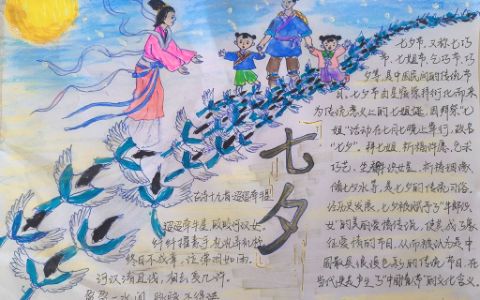 七夕
七夕节,又称七巧
节、七姐节、乞巧节、巧
夕等,是中国民间的传统节
日。七夕节由星宿崇拜衍化而来
为传统意义上的七姐诞,因拜祭“七
姐”活动在七月七晚上举行,故名
“七夕”。拜七姐、祈福许愿、乞求
巧艺、坐看牵牛织女星、祈祷姻缘、
储七夕水等,是七夕的传统习俗。
经历史发展,七夕被赋予了“牛郎织
女”的美丽爱情传说,使其成了象
征爱情的节日,从而被认为是中
国最具浪漫色彩的传统节日,在
当代更是产生了“中国情人节”的文化含义。
古诗十九首·迢迢牵牛星
迢迢牵牛星,皎皎河汉女。
纤纤擢素手,札札弄机杼。
终日不成章,泣涕零如雨。
河汉清且浅,相去复几许。
盈盈一水间,脉脉不得语